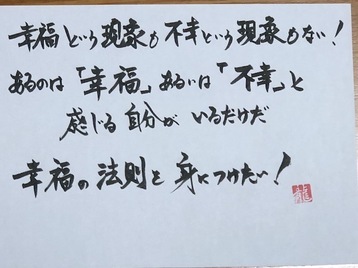 幸福という現象も不幸という現象もない!
あるのは「幸福」あるいは「不幸」と
感じる自分がいるだけだ
幸福の法則を身につけたい!